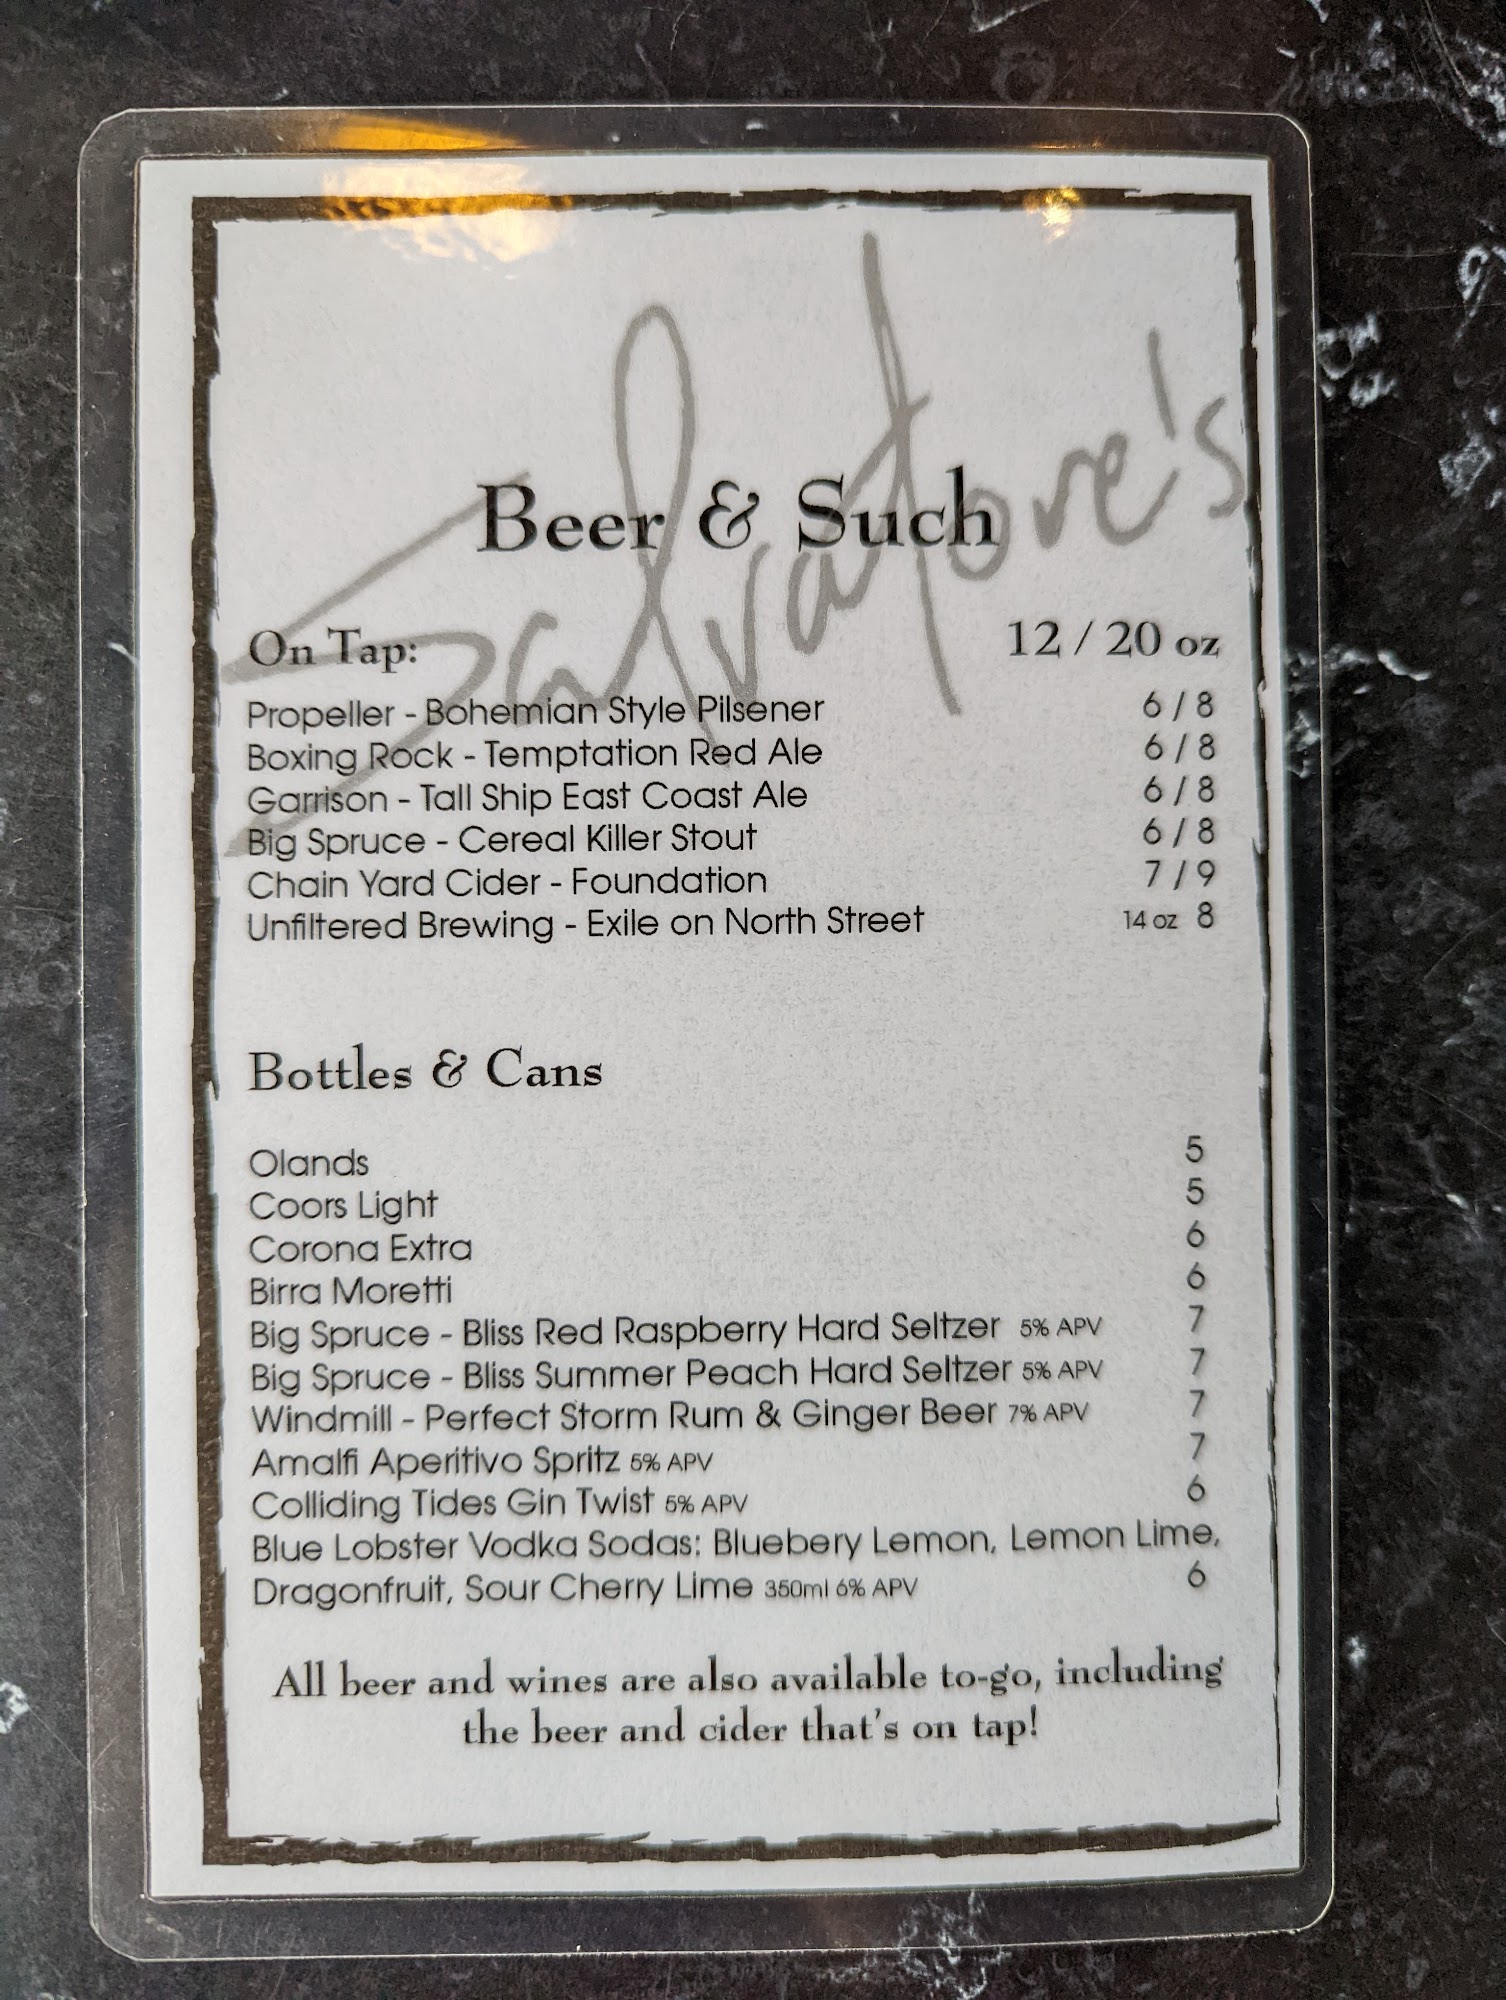 Salvatore's
Beer & Such
On Tap: 12 / 20 oz
Propeller - Bohemian Style Pilsener 6 / 8
Boxing Rock - Temptation Red Ale 6 / 8
Garrison - Tall Ship East Coast Ale 6 / 8
Big Spruce - Cereal Killer Stout 6 / 8
Chain Yard Cider - Foundation 7 / 9
Unfiltered Brewing - Exile on North Street 14 oz 8
Bottles & Cans
Olands 5
Coors Light 5
Corona Extra 6
Birra Moretti 6
Big Spruce - Bliss Red Raspberry Hard Seltzer 5% APV 7
Big Spruce - Bliss Summer Peach Hard Seltzer 5% APV 7
Windmill - Perfect Storm Rum & Ginger Beer 7% APV 7
Amalfi Aperitivo Spritz 5% APV 7
Colliding Tides Gin Twist 5% APV 6
Blue Lobster Vodka Sodas: Bluebery Lemon, Lemon Lime,
Dragonfruit, Sour Cherry Lime 350ml 6% APV 6
All beer and wines are also available to-go, including
the beer and cider that's on tap!